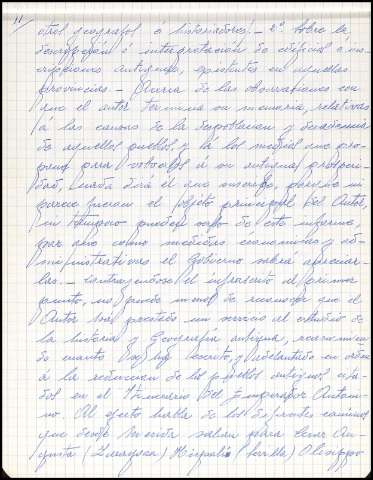 11
otros geografos é historiadores. - 2º sobre la
descripcion é interpretacion de edificios é ins-
cripciones antiguas, existentes en aquellas
provincias - Acerca de las observaciones con
que el autor termina su memoria, relativas
á las causas de la despoblacion y decadencia
de aquellos pueblos y á los medios que pro-
pone para volverlos á su antigua prosperi-
dad, nada dirá el que suscribe, porque ni
parece fueran el objeto principal del Autor,
ni tampoco pueden serlo de este informe,
por que como medidas economicas y ad-
ministrativas el Gobierno sabrá apreciar-
las. - Contrayendose el infrascrito al primer
punto, no puede menos de reconocer que el
Autor ha prestado un servicio al estudio de
la historia y Geografía antigua, reasumiendo
de cuanto hay escrito, y adelantado en orden
á la reduccion de los pueblos antiguos cita-
dos en el Itinerario del Emperador Antoni-
no. Al efecto habla de los de caminos
que desde Merida salian para Cesar Au-
gusta (Zaragoza) Hispalis (Sevilla) Olisippo